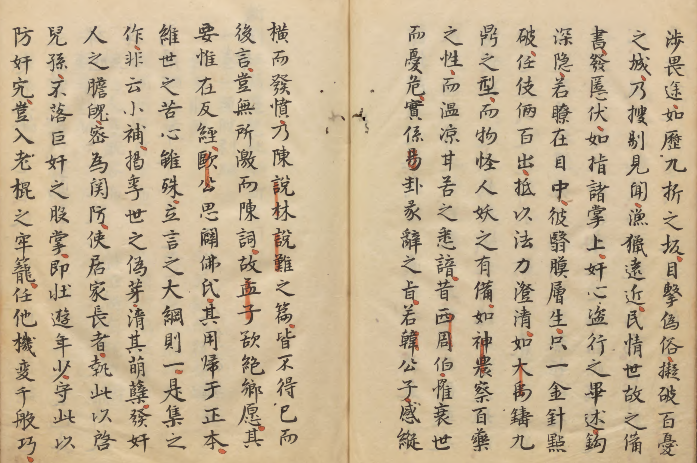 涉畏途如歷九折之坂目擊僞俗擬破百憂
之城乃搜剔見聞漁獵遠近民情世故之備
書發隱伏如指諸掌上奸心盜行之畢述鈎
深隐若瞭在目中彼翳膜層生只一金針點
破任伎倆百出抵以法力澄清如大禹鑄九
鼎之型而物怪人妖之有備如神農察百藥
之性而温凉甘苦之悉諳昔西周伯惟衰世
而憂危實係易卦彖辭之旨若韓公子感縱
橫而發憤乃陳說林說難之篇皆不得已而
後言豈無所激而陳詞故孟子欲絕鄉愿其
要惟在反經歐公思闢佛氏其用歸于正本
維世之苦心雖殊立言之大綱則一是集之
作非云小補揭季世之僞芽清其萌蘖發奸
人之膽魄密為関防使居家長者執此以啓
兒孫不落巨奸之股掌即壯遊年少守此以
防奸宄豈入老棍之牢籠任他機变千般巧